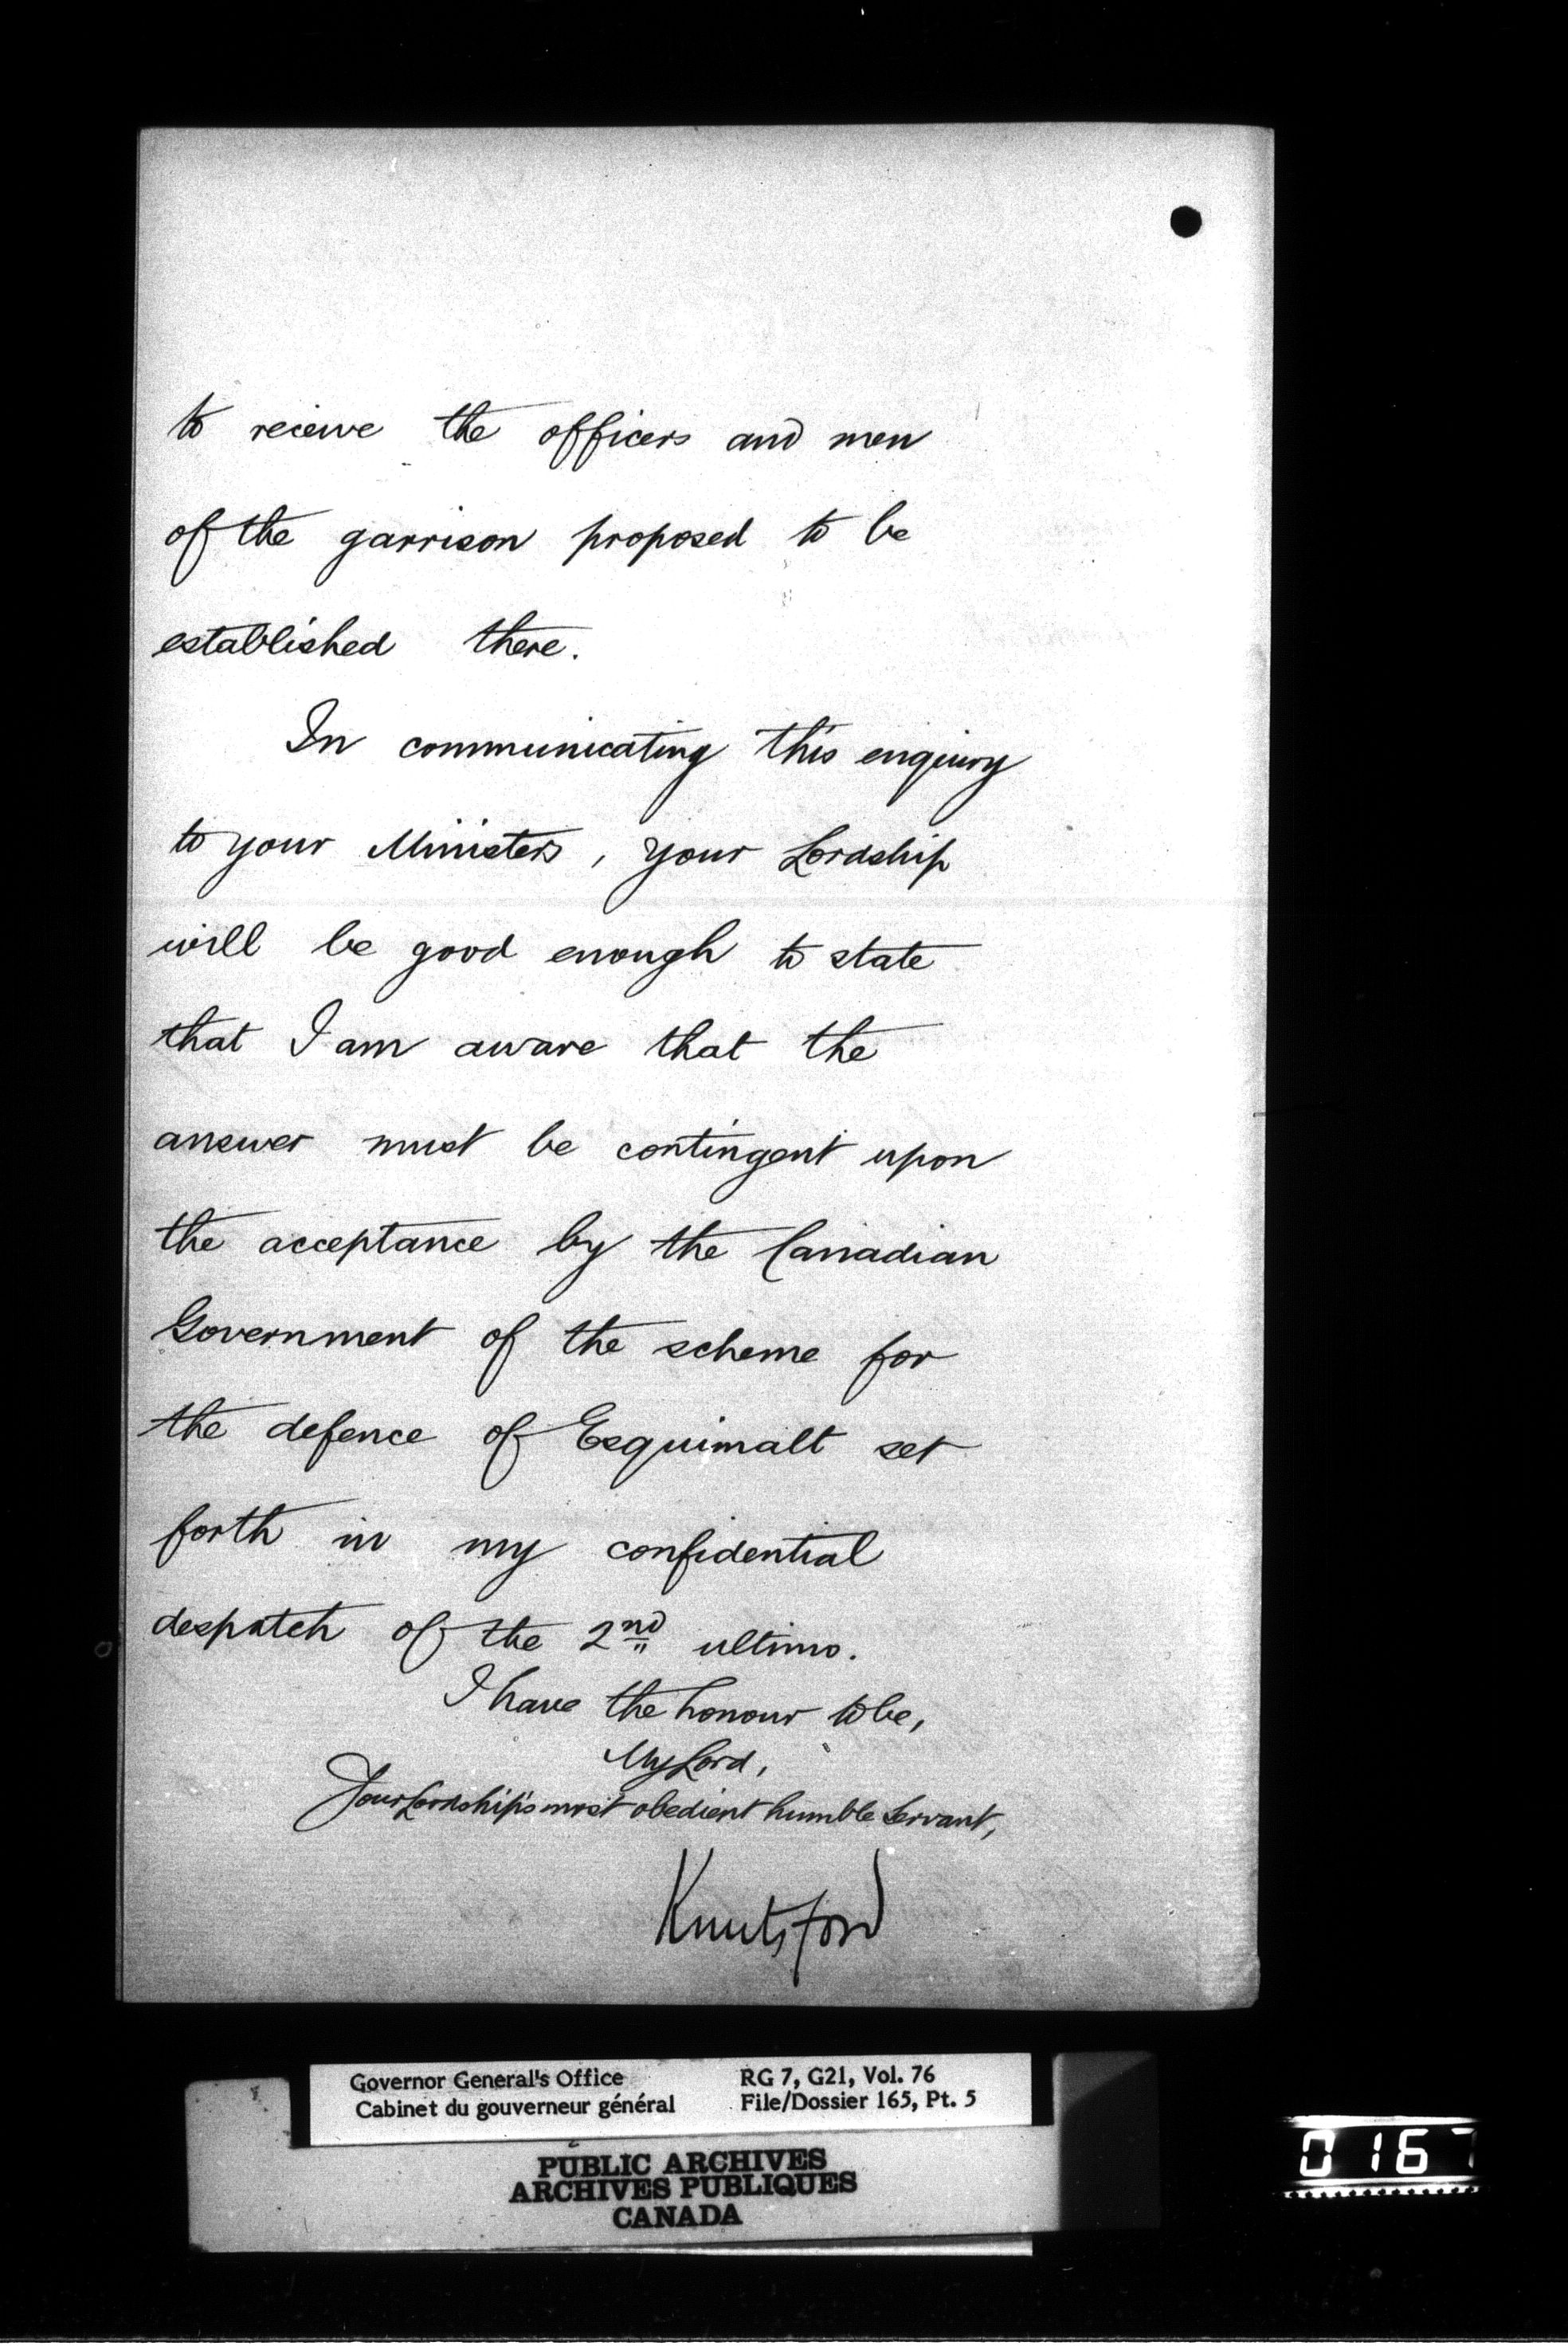 to receive the officers and men
of the garrison proposed to be
established there.
In communicating this enquiry
to your Ministers, your Lordship
will be good enough to state
that I am aware that the
answer must be contingent upon
the acceptance by the Canadian
Government of the scheme for
the defence of Esquimalt set
forth in my confidential
despatch of the 2nd ultimo.
I have the honour to be,
My Lord,
Your Lordship's most obedient humble Servant,
Knutsford
Governor General's Office RG 7, G21, Vol. 76
Cabinet du gouverneur général File/Dossier 165, Pt. 5
PUBLIC ARCHIVES
ARCHIVES PUBLIQUES
CANADA
0167